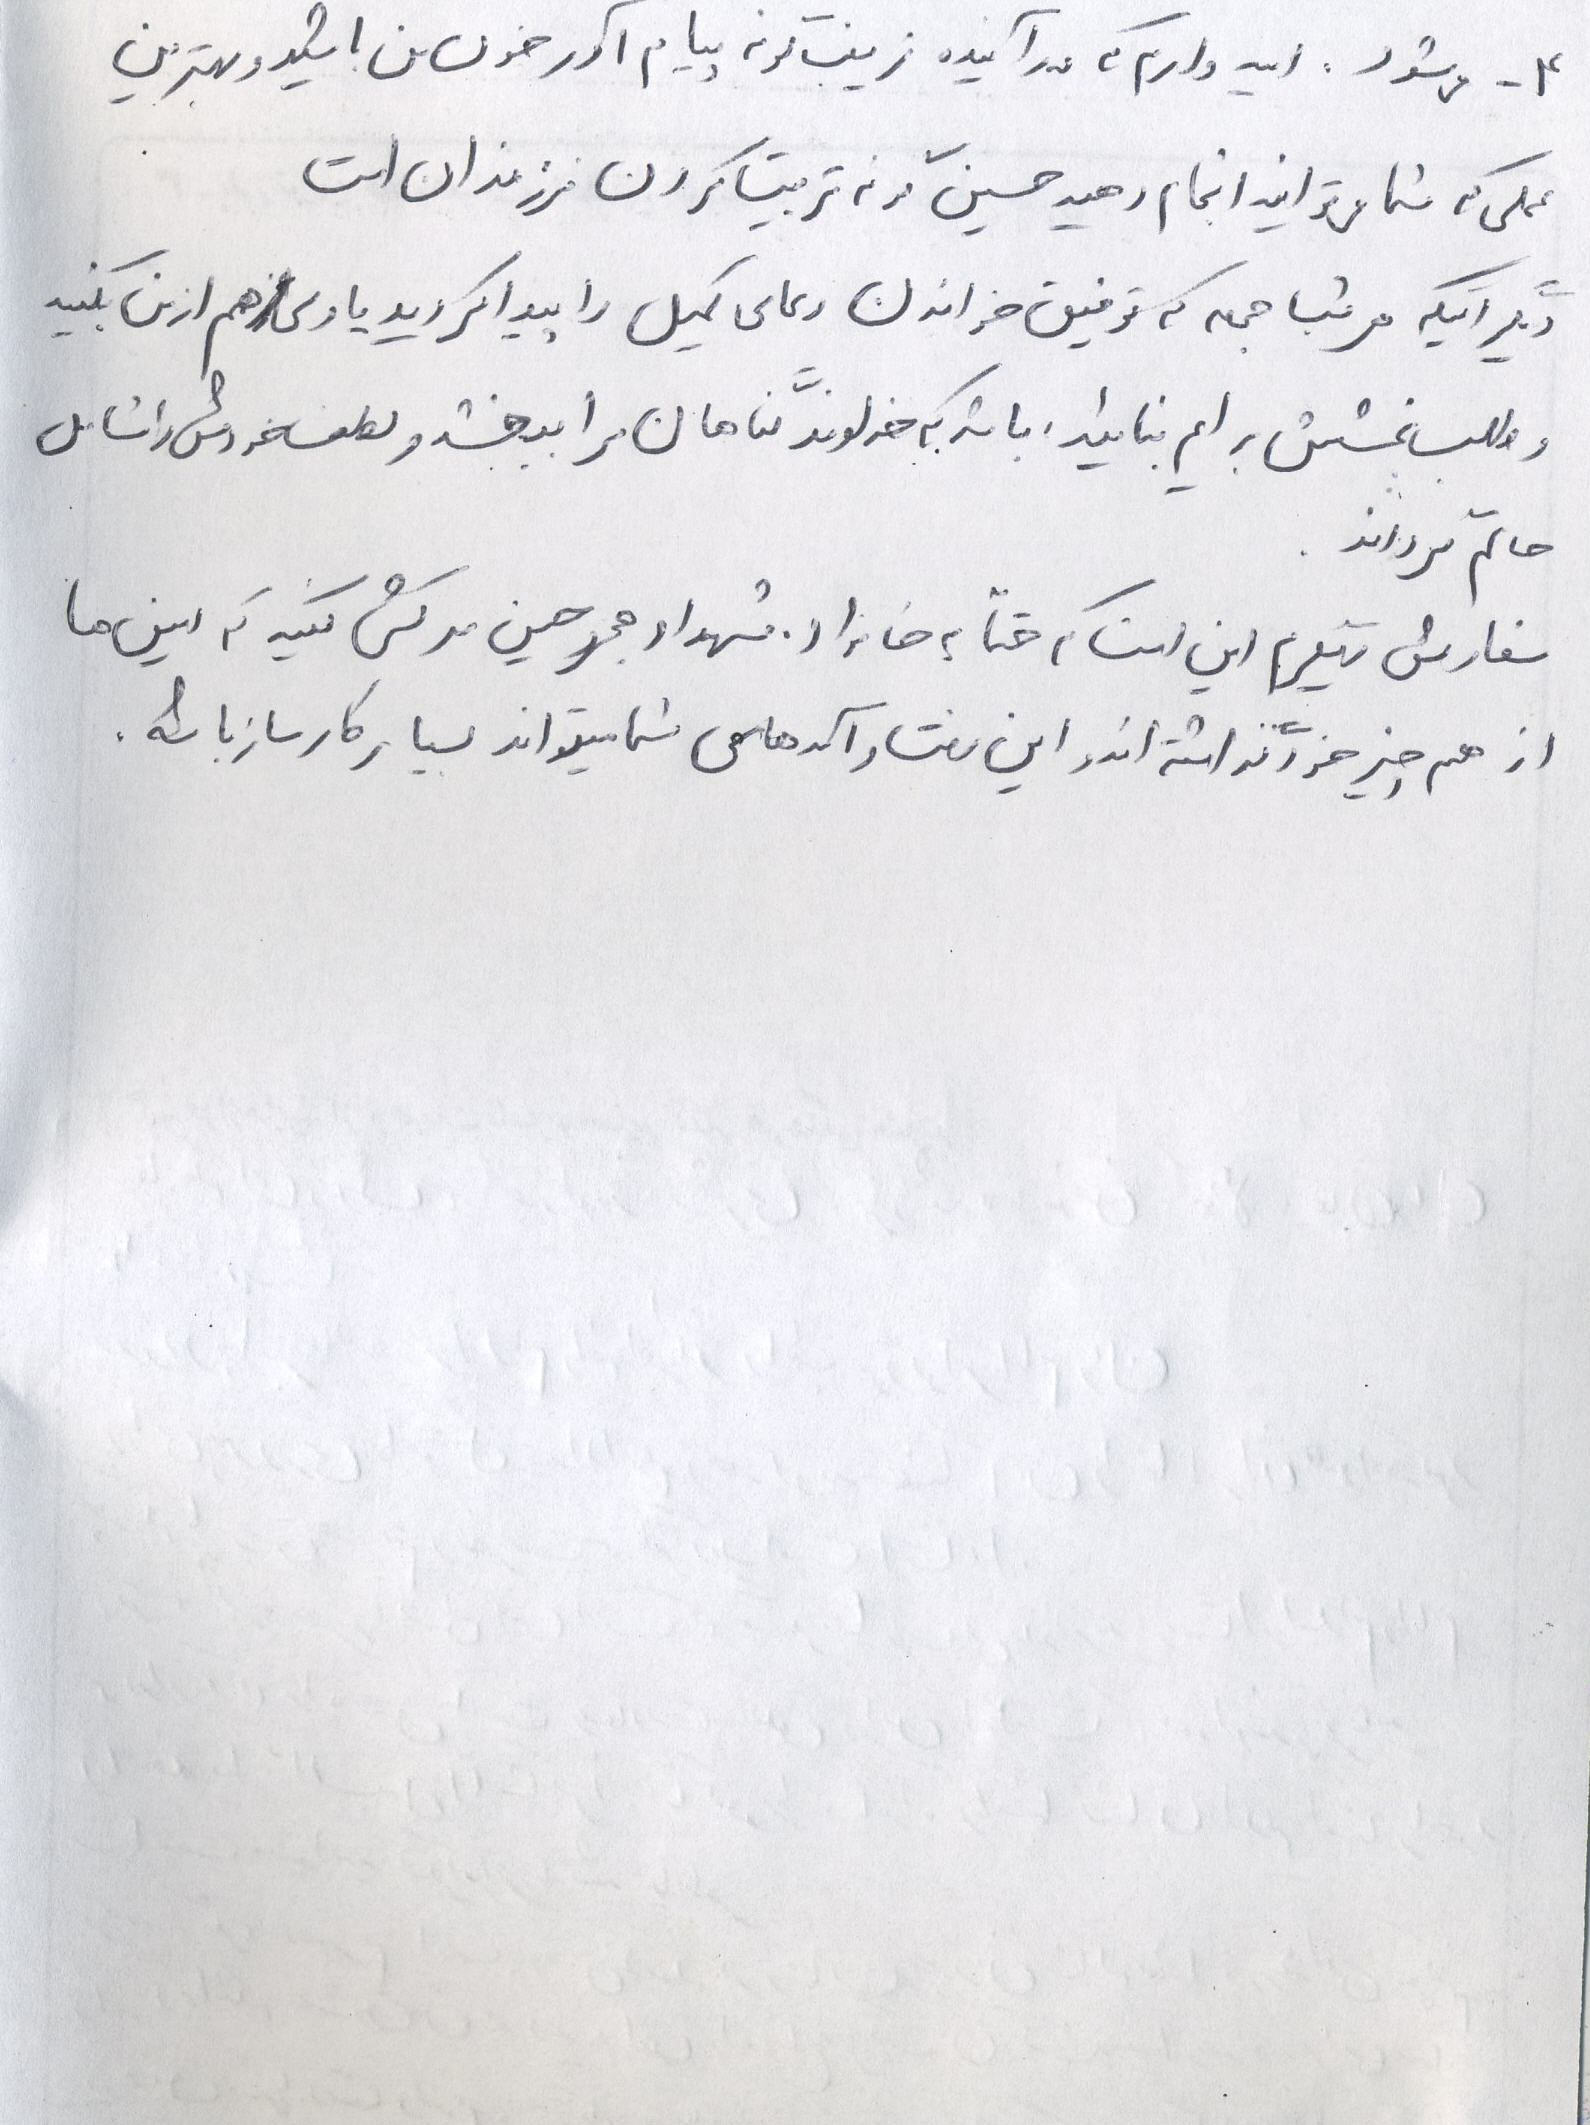 ۴- میشود. امیدوارم که در آینده زینب‌گونه پیام آور خون من باشید و بهترین
عملی که شما می‌توانید انجام دهید حسین گونه تربیت کردن فرزندان است
دیگر اینکه هر شب جمعه که توفیق خواندن دعای کمیل را پیدا کردید یادی هم از من بکنید
و طلب بخشش برایم بنمایید، باشد که خداوند گناهان مرا ببخشد و لطف خودش را شامل
حالم گرداند.
سفارش دیگرم این است که حتماً به خانواده شهدا و مجروحین سرکشی کنید که این‌ها
از همه چیز خود گذاشته‌اند و این رفت و آمدهای شما میتواند بسیار کارساز باشد.